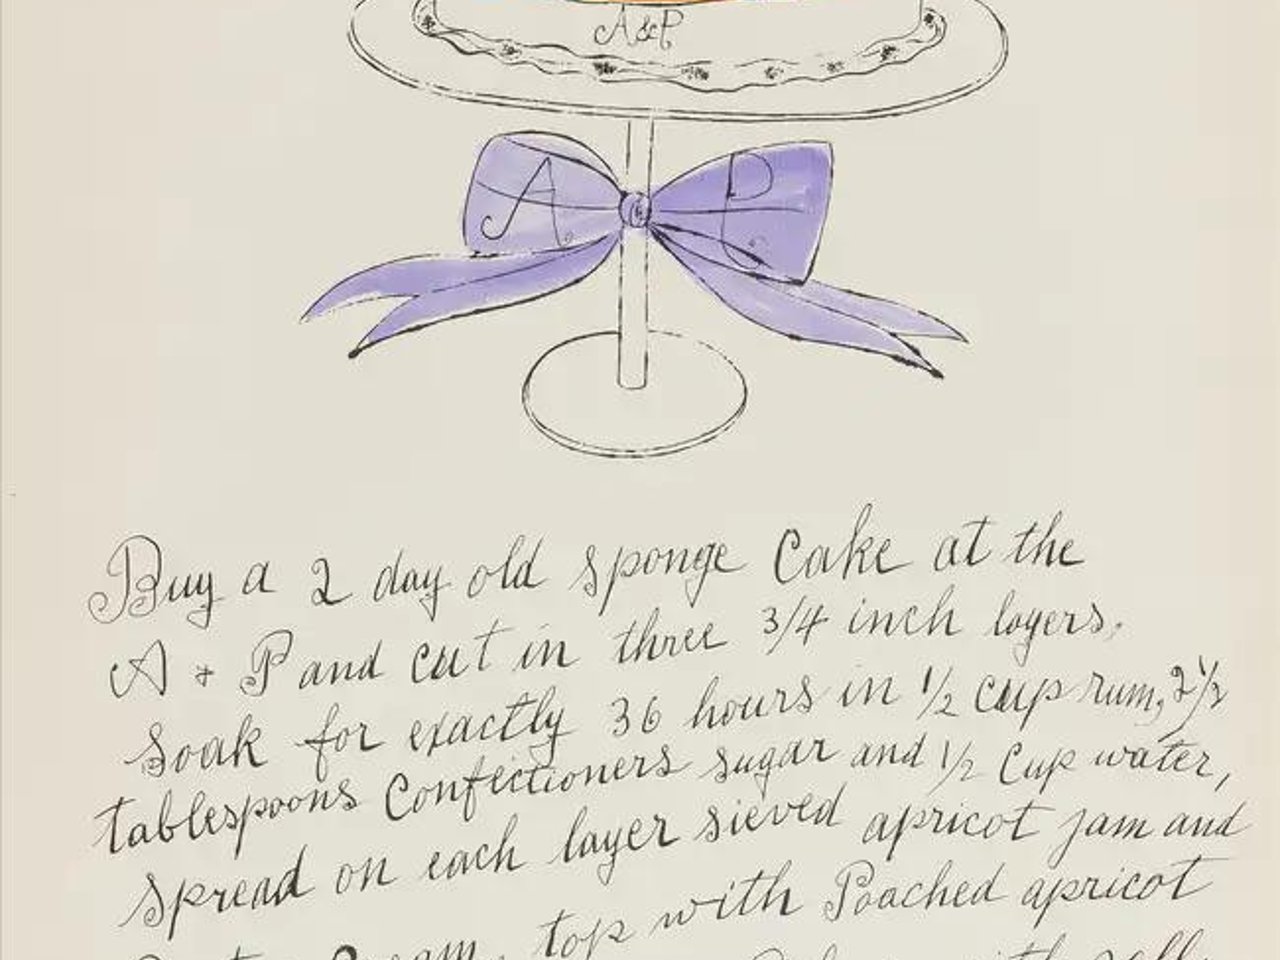 A&P
A P
Buy a 2 day old sponge Cake at the
A + P and cut in three 3/4 inch layers.
Soak for exactly 36 hours in 1/2 cup rum, 2 1/2
tablespoons Confectioners sugar and 1/2 Cup water,
Spread on each layer sieved apricot jam and
top with Poached apricot
with